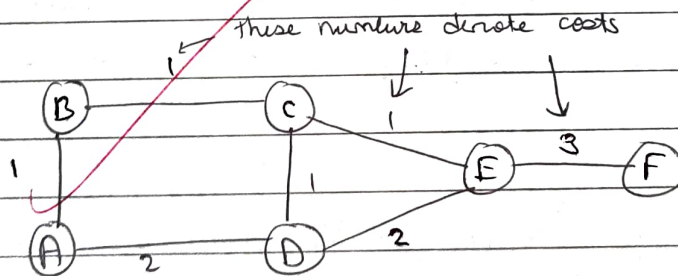 these numbers denote costs
1
B
C
1
1
E
3
F
1
A
2
D
2